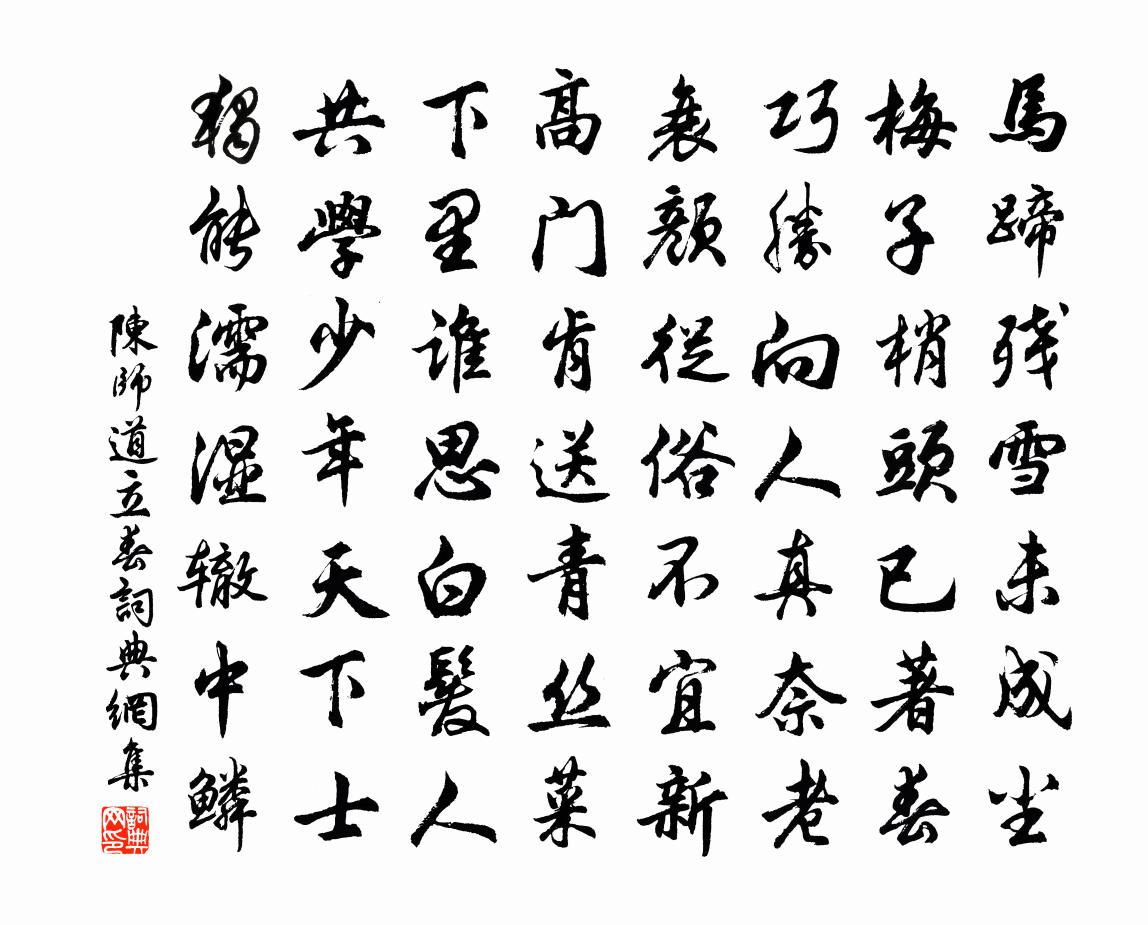 馬蹄残雪未成尘
梅子梢頭已著春
巧勝向人真奈老
衰顏從俗不宜新
高门肯送青丝菜
下里谁思白髮人
共學少年天下士
獨能濡湿辙中鳞
陳師道立春詞典網集
詞典网印